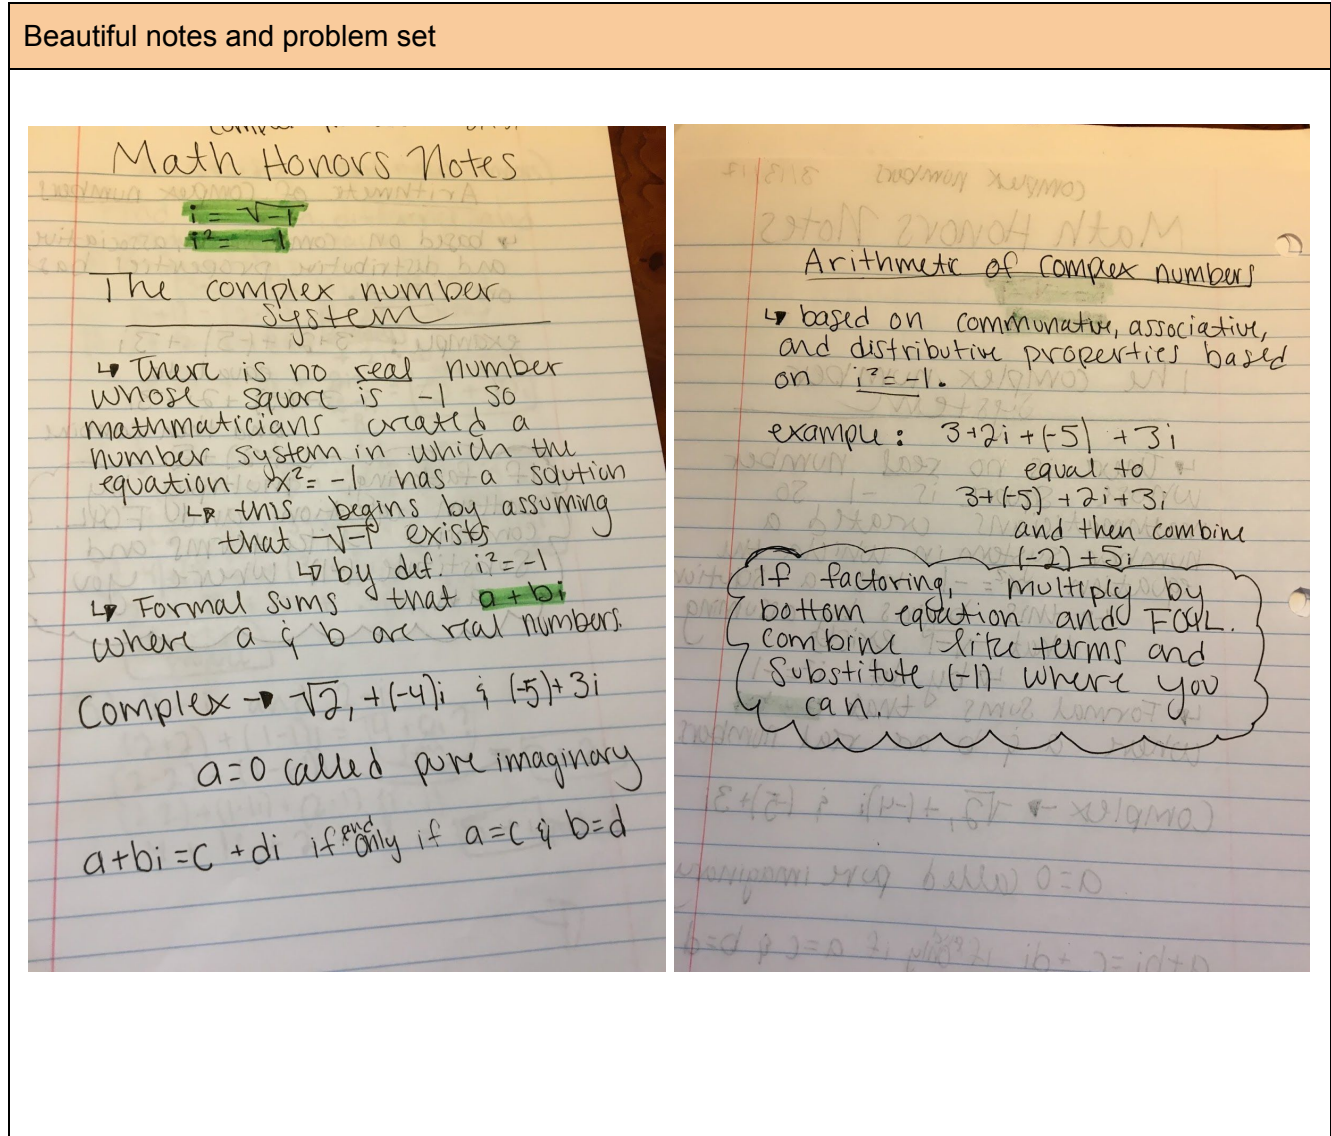 Beautiful notes and problem set
Math Honors Notes
i = √-1
i² = -1
The complex number
system
↳ There is no real number
whose square is -1 so
mathmaticians created a
number system in which the
equation x² = -1 has a solution
↳ this begins by assuming
that √-1 exists
↳ by def. i² = -1
↳ Formal sums that a + bi
where a & b are real numbers.
Complex → √2, +(-4)i & (-5)+3i
a=0 called pure imaginary
a+bi = c +di if and only if a=c & b=d
complex numbers 3/13/17
Math Honors Notes
Arithmetic of complex numbers
↳ based on communative, associative,
and distributive properties based
on i² = -1.
example: 3+2i + (-5) + 3i
equal to
3+(-5) +2i+3i
and then combine
(-2) +5i
If factoring, multiply by
bottom equation and FOIL.
combine like terms and
substitute (-1) where you
can.